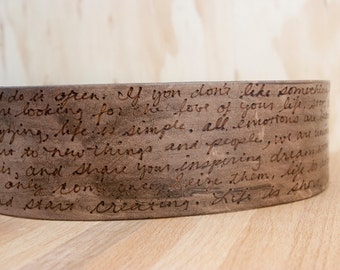 do is open. If you don't like something
looking for the love of your life,
life is simple. all emotions are
new things and people, we are
and share your inspiring dream
only come once, seize them, life
and start creating. Life is short,